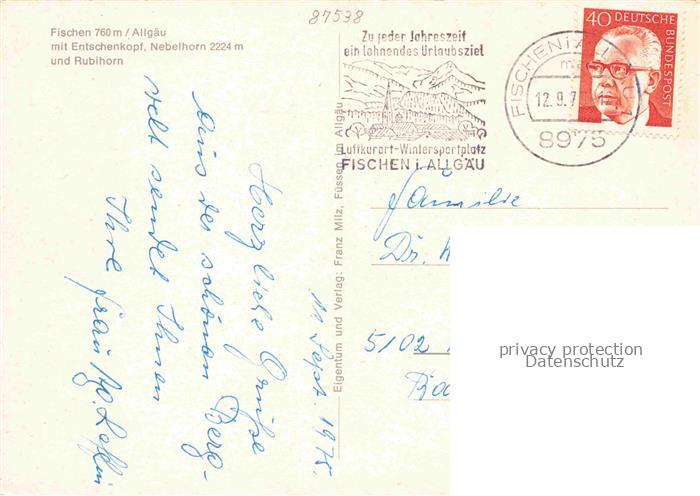 87538
Fischen 760 m / Allgäu
mit Entschenkopf, Nebelhorn 2224 m
und Rubihorn
Zu jeder Jahreszeit
ein lohnendes Urlaubsziel
Luftkurort-Wintersportplatz
FISCHEN i. ALLGÄU
FISCHEN i. ALL
12.9.7
8975
40 DEUTSCHE
BUNDESPOST
Eigentum und Verlag: Franz Milz, Füssen im Allgäu
11. Sept. 1975.
Herzliche Grüße
aus der schönen Berg-
welt sendet Ihnen
Ihre Frau
Familie
Dr.
5102
privacy protection
Datenschutz